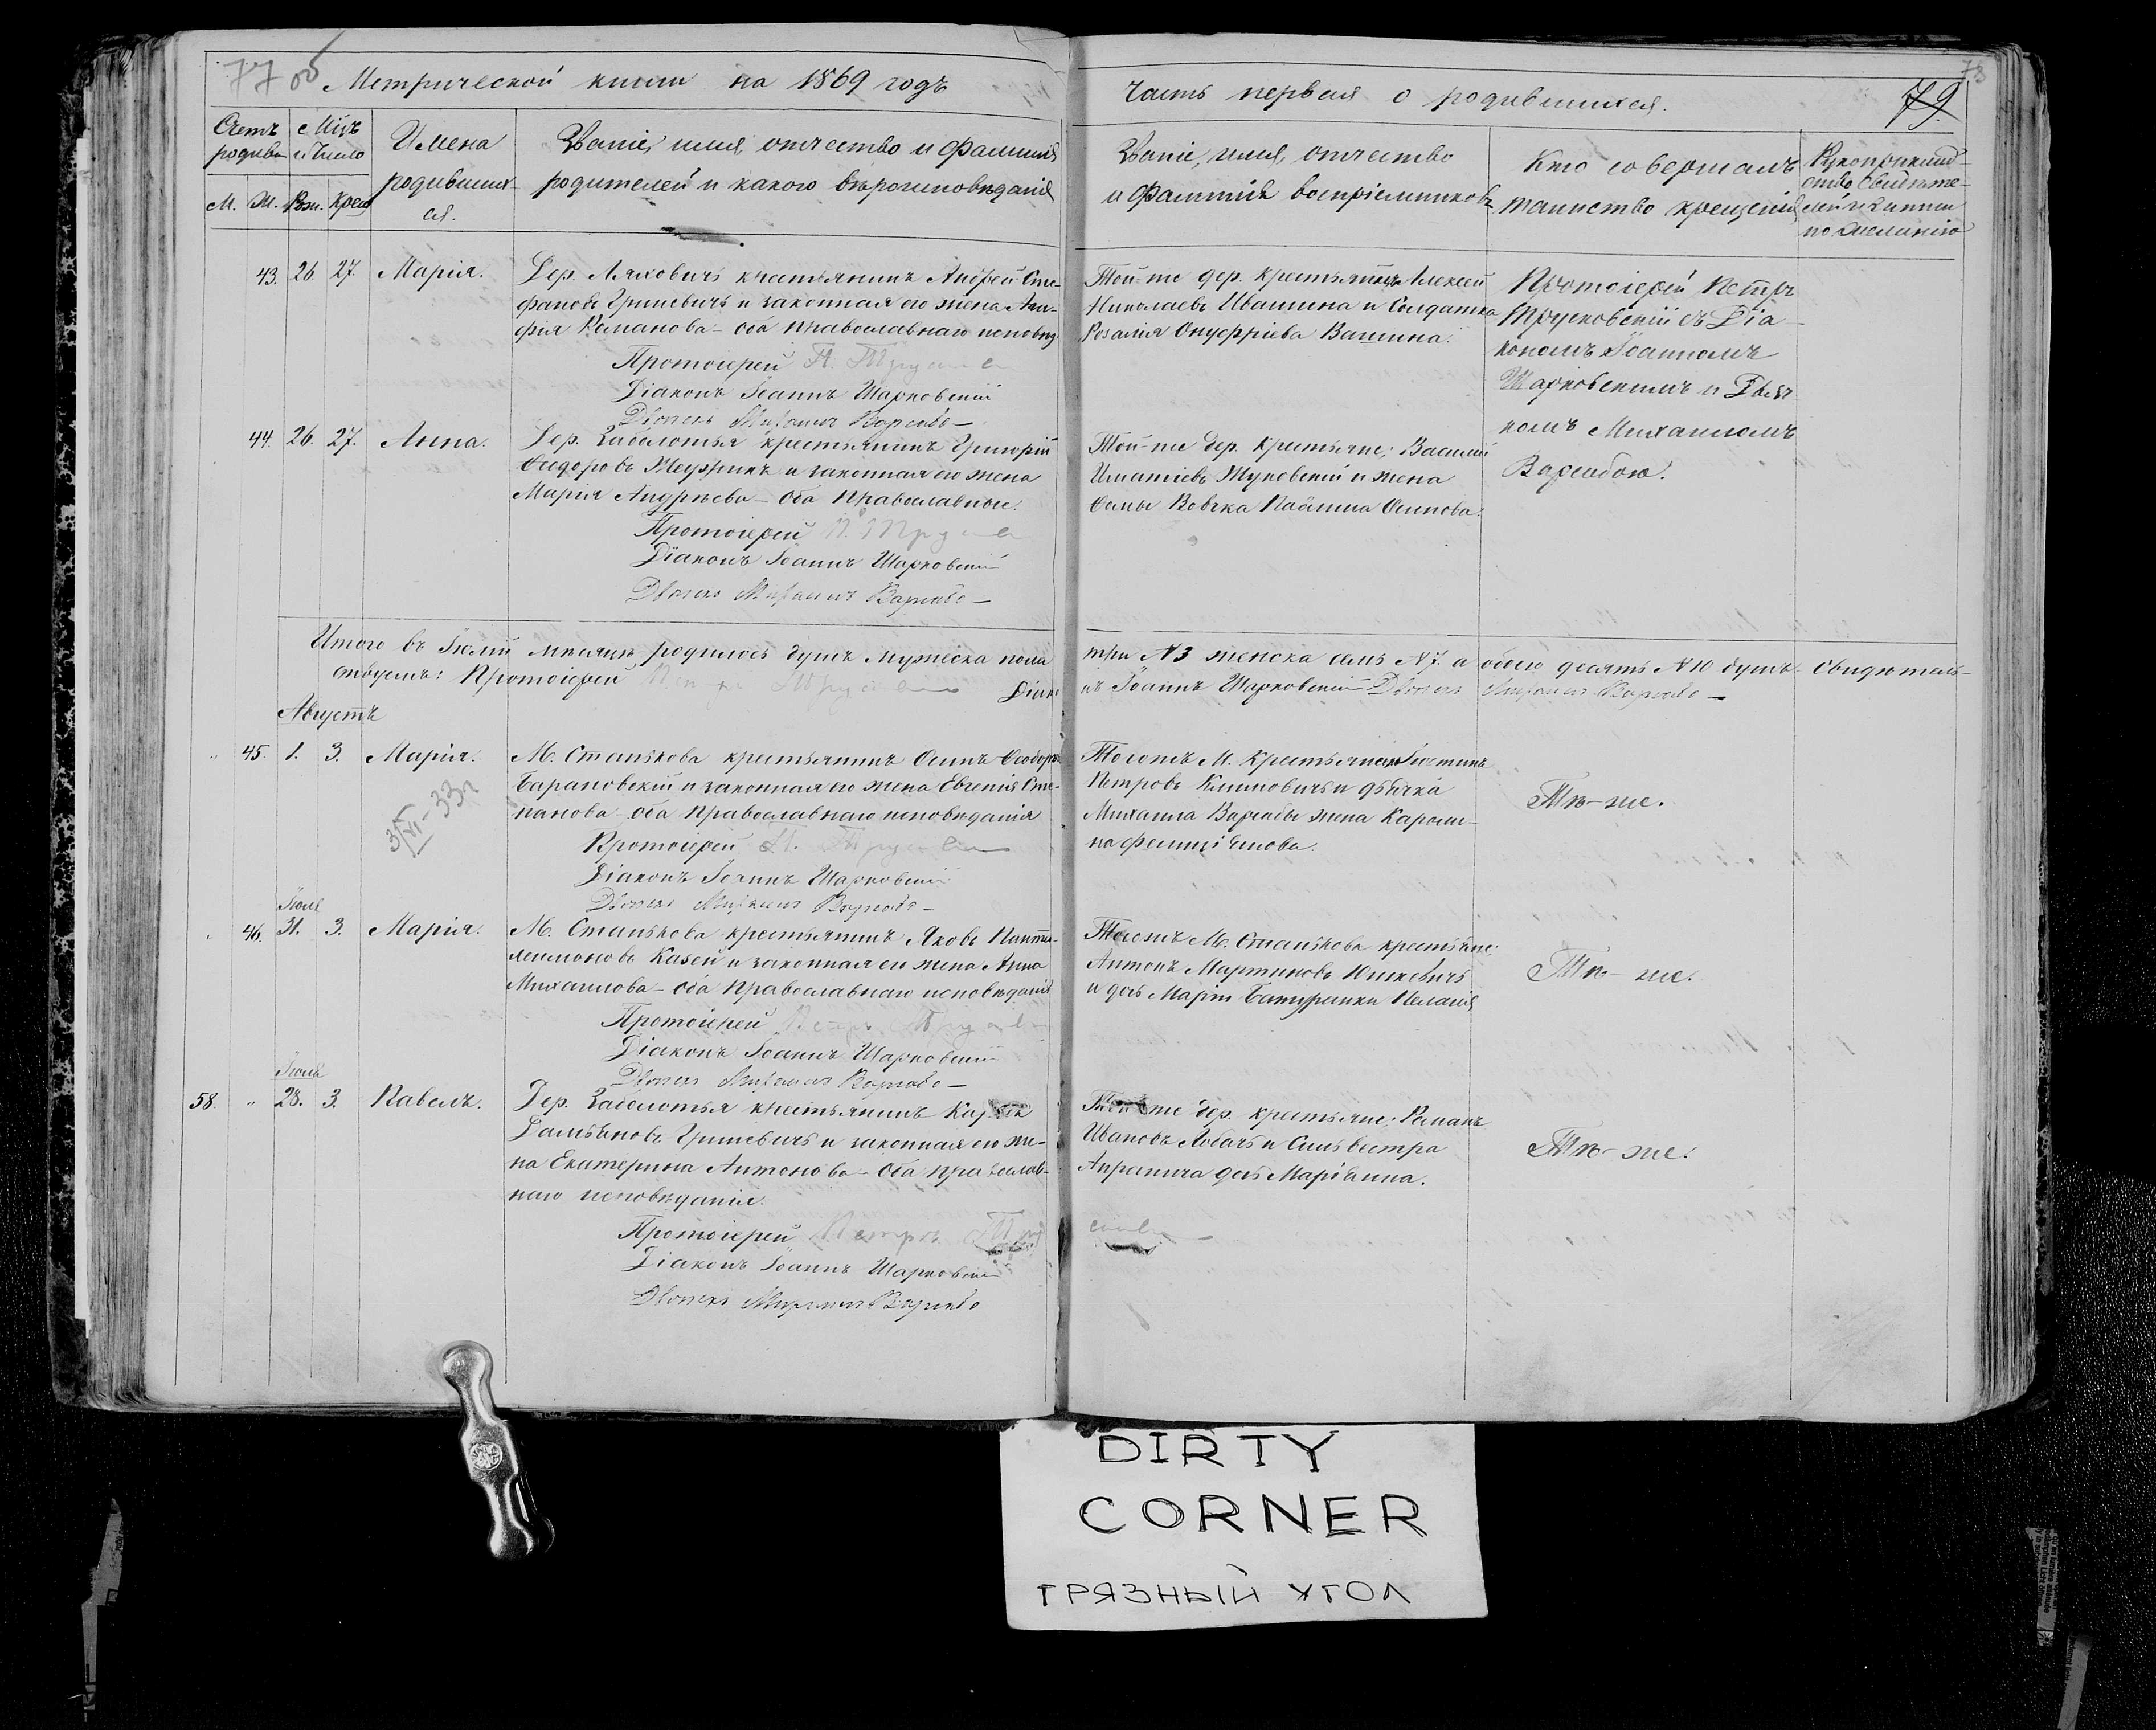 77 об
Метрической книги на 1869 годъ
Часть первая о родившихся.
79
78
Счетъ родивш
М. Ж.
Мцъ и число
Рож. Крещ
Имена родивших-
ся.
Званіе, имя, отчество и фамилія
родителей и какого вѣроисповѣданія
Званіе, имя, отчество
и фамилія воспріемниковъ
Кто совершалъ
таинство крещенія
Рукоприклад-
ство свидѣте-
лей записи
по желанію
43. 26 27. Марія.
Дер. Ляховичъ крестьянинъ Андрей Сте-
фановъ Гришевичъ и законная его жена Ага-
фія Романова - оба православнаго исповѣд.
Протоіерей П.
Діаконъ Іоаннъ Шарковскій
Михаилъ
Той-же дер. крестьянинъ Алексей
Николаевъ Ивашина и солдатка
Розалія Онуфріева Вашина.
Протоіерей Петръ
съ Діа-
кономъ Іоанномъ
Шарковскимъ и Дьяч
комъ Михаиломъ
44. 26. 27. Анна.
Дер. Заболотья крестьянинъ Григорій
Ѳедоровъ и законная его жена
Марія Андрѣева - оба православные.
Протоіерей П.
Діаконъ Іоаннъ Шарковскій
Михаилъ
Той-же дер. крестьяне; Василій
Игнатіевъ Жуковскій и жена
Ѳомы Осипова.
Итого въ Іюлѣ мѣсяцѣ родилось душъ мужеска пола три №3 женска семь №7. а обоего десять №10 душъ. Свидѣтель-
ствуемъ: Протоіерей Петръ Діаконъ Іоаннъ Шарковскій Михаилъ
Августъ
45. 1. 3. Марія.
3/VI-33г
М. Станькова крестьянинъ Осипъ Ѳеодоровъ
Барановскій и законная его жена Евгенія Сте-
панова - оба православнаго исповѣданія
Протоіерей П.
Діаконъ Іоаннъ Шарковскій
Михаилъ
Тогожъ М. крестьянинъ
Петровъ Климовичъ и дьячка
Михаила жена Кароли-
на
Тѣ-же.
Іюля
46. 31. 3. Марія.
М. Станькова крестьянинъ Яковъ Панте-
леимоновъ Казей и законная его жена Анна
Михаилова - оба православнаго исповѣданія
Протоіерей Петръ
Діаконъ Іоаннъ Шарковскій
Михаилъ
Тогожъ М. Станькова крестьяне:
Антонъ Мартиновъ Юшкевичъ
и дочь Маріи Пелагія
Тѣ-же.
Іюля
58. " 28. 3. Павелъ.
Дер. Заболотья крестьянинъ
Даміановъ Гришевичъ и законная его же-
на Екатерина Антонова - оба православ-
наго исповѣданія.
Протоіерей Петръ
Діаконъ Іоаннъ Шарковскій
Михаилъ
Той же дер. крестьяне: Романъ
Ивановъ Лобачъ и Сильвестра
дочь Маріанна.
Тѣ-же.
DIRTY
CORNER
ГРЯЗНЫЙ УГОЛ